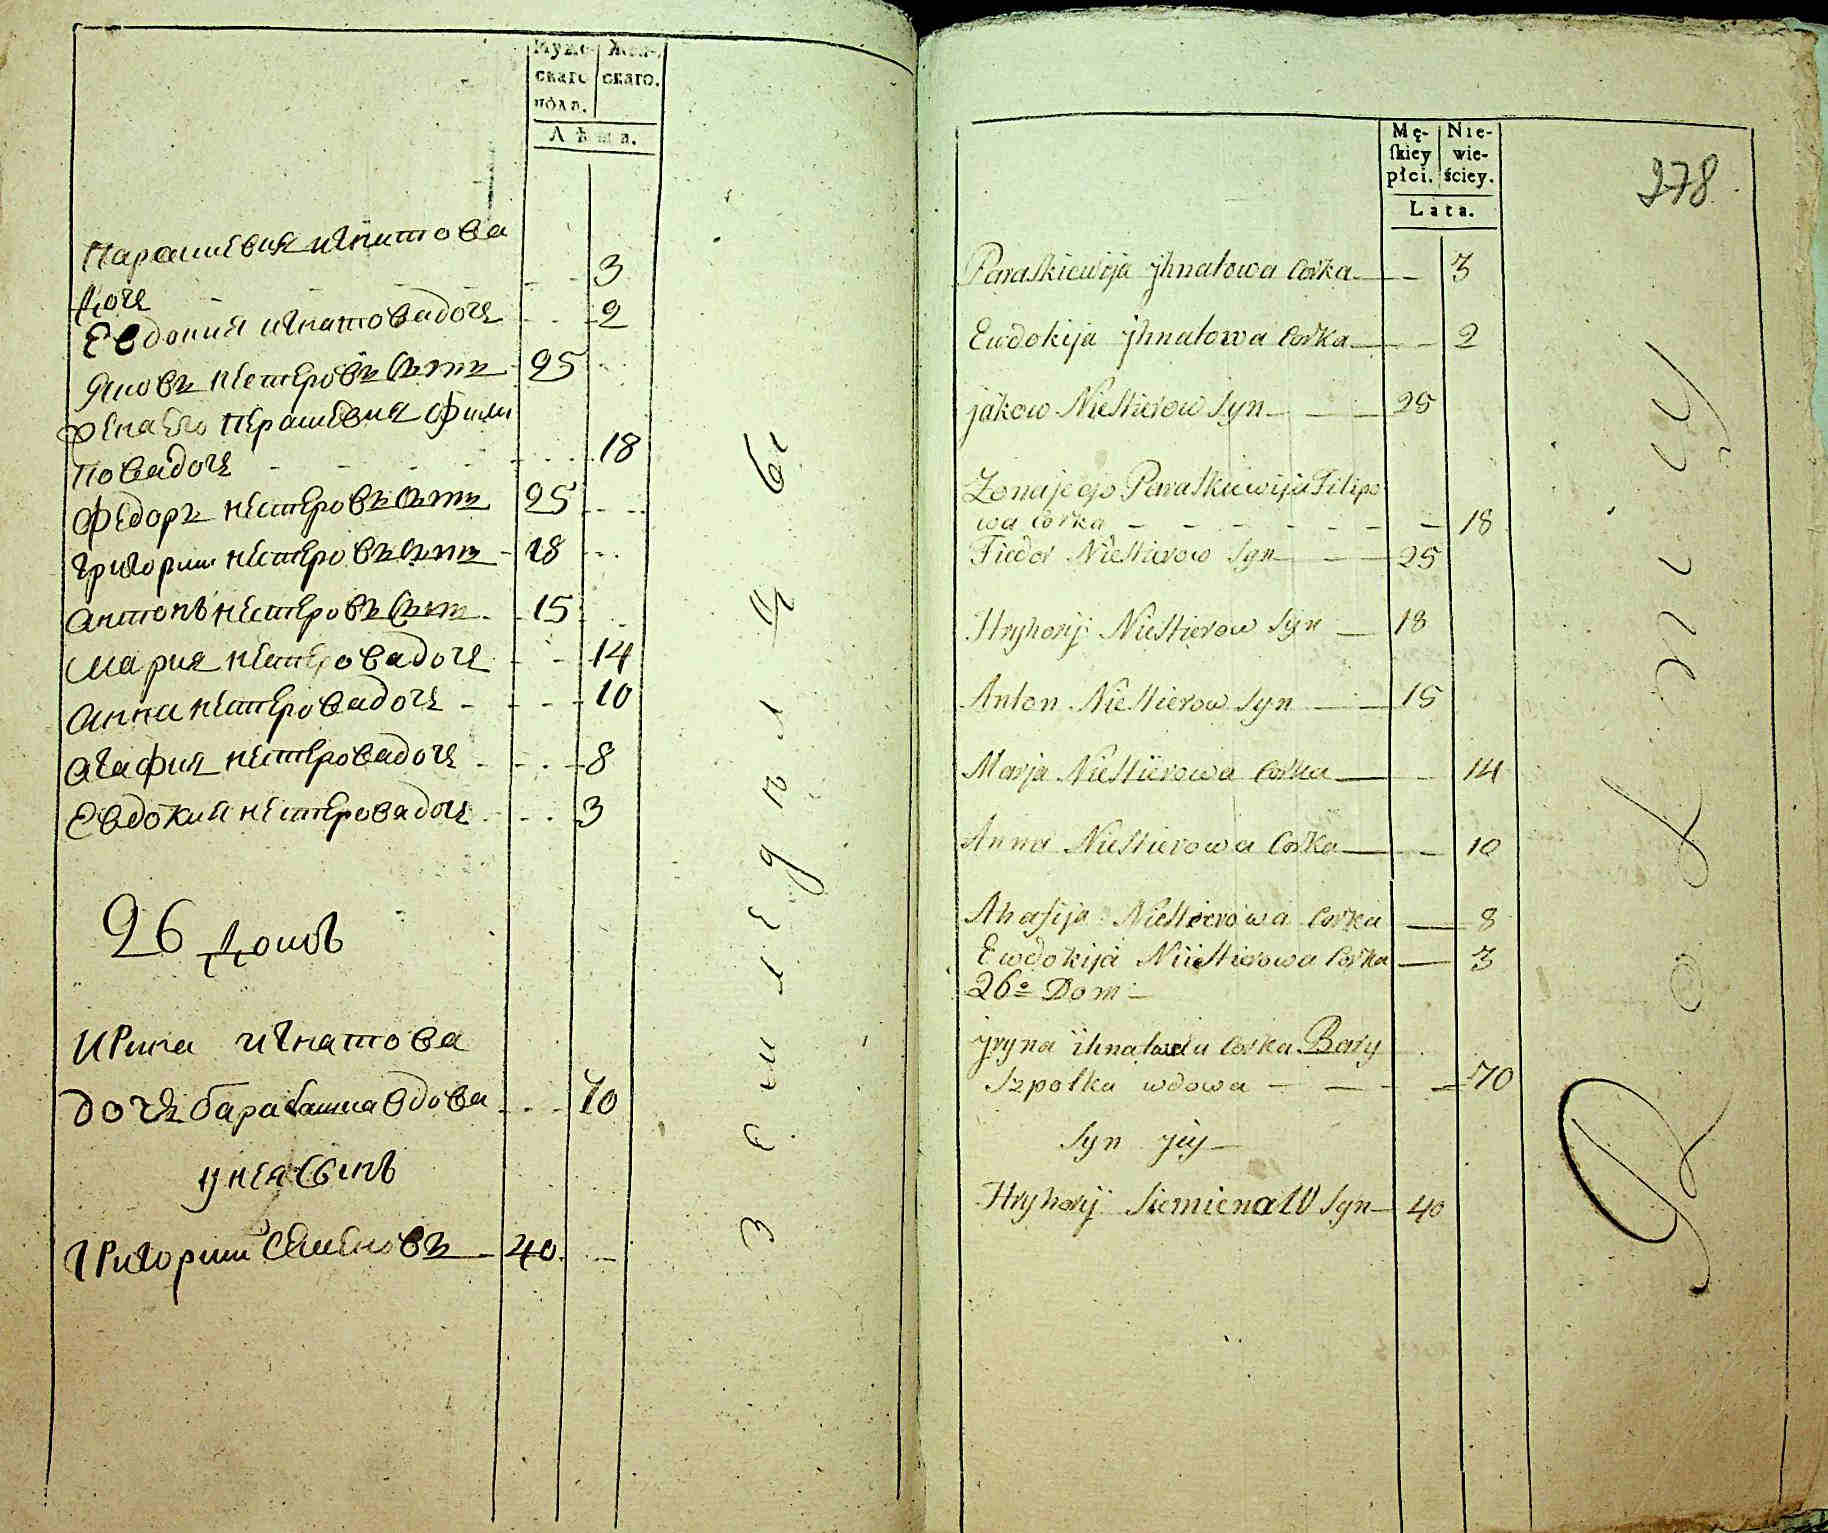 Муже-
скаго
пола.
Жен-
скаго.
Лѣта.
Парасшевия игнатова
3
дочь
Евдокия игнатова дочь 2
Яковъ нестеровъ сынъ 25
жена его перасшевия Фили
повадочь 18
Федоръ нестеровъ сынъ 25
григории нестеровъ сынъ 18
антонъ нестеровъ сынъ 15
мария нестерова дочь 14
анна нестерова дочь 10
агафия нестерова дочь 8
Евдокия нестерова дочь 3
26 домъ
Ирина игнатова
дочь вдова 70
у нея сынъ
григории семеновъ 40
земледелцы
278
Mę-
skiey
płci.
Nie-
wie-
ściey.
Lata.
Paraskiewija jhnatowa Corka 3
Ewdokija jhnatowa Corka 2
jakow Niestierow Syn 25
Zona jego Paraskiewija Filipo
wa Corka 18
Fiedor Niestierow Syn 25
Hryhorij Niestierow Syn 18
Anton Niestierow Syn 15
Marja Niestierowa Corka 14
Anna Niestierowa Corka 10
Ahafija Niestierowa Corka 8
Ewdokija Niestierowa Corka 3
26º Dom
jryna ihnatowa Corka Bary
Szpolka wdowa 70
Syn jey
Hryhorij SiemienaW Syn 40
Rolnicy